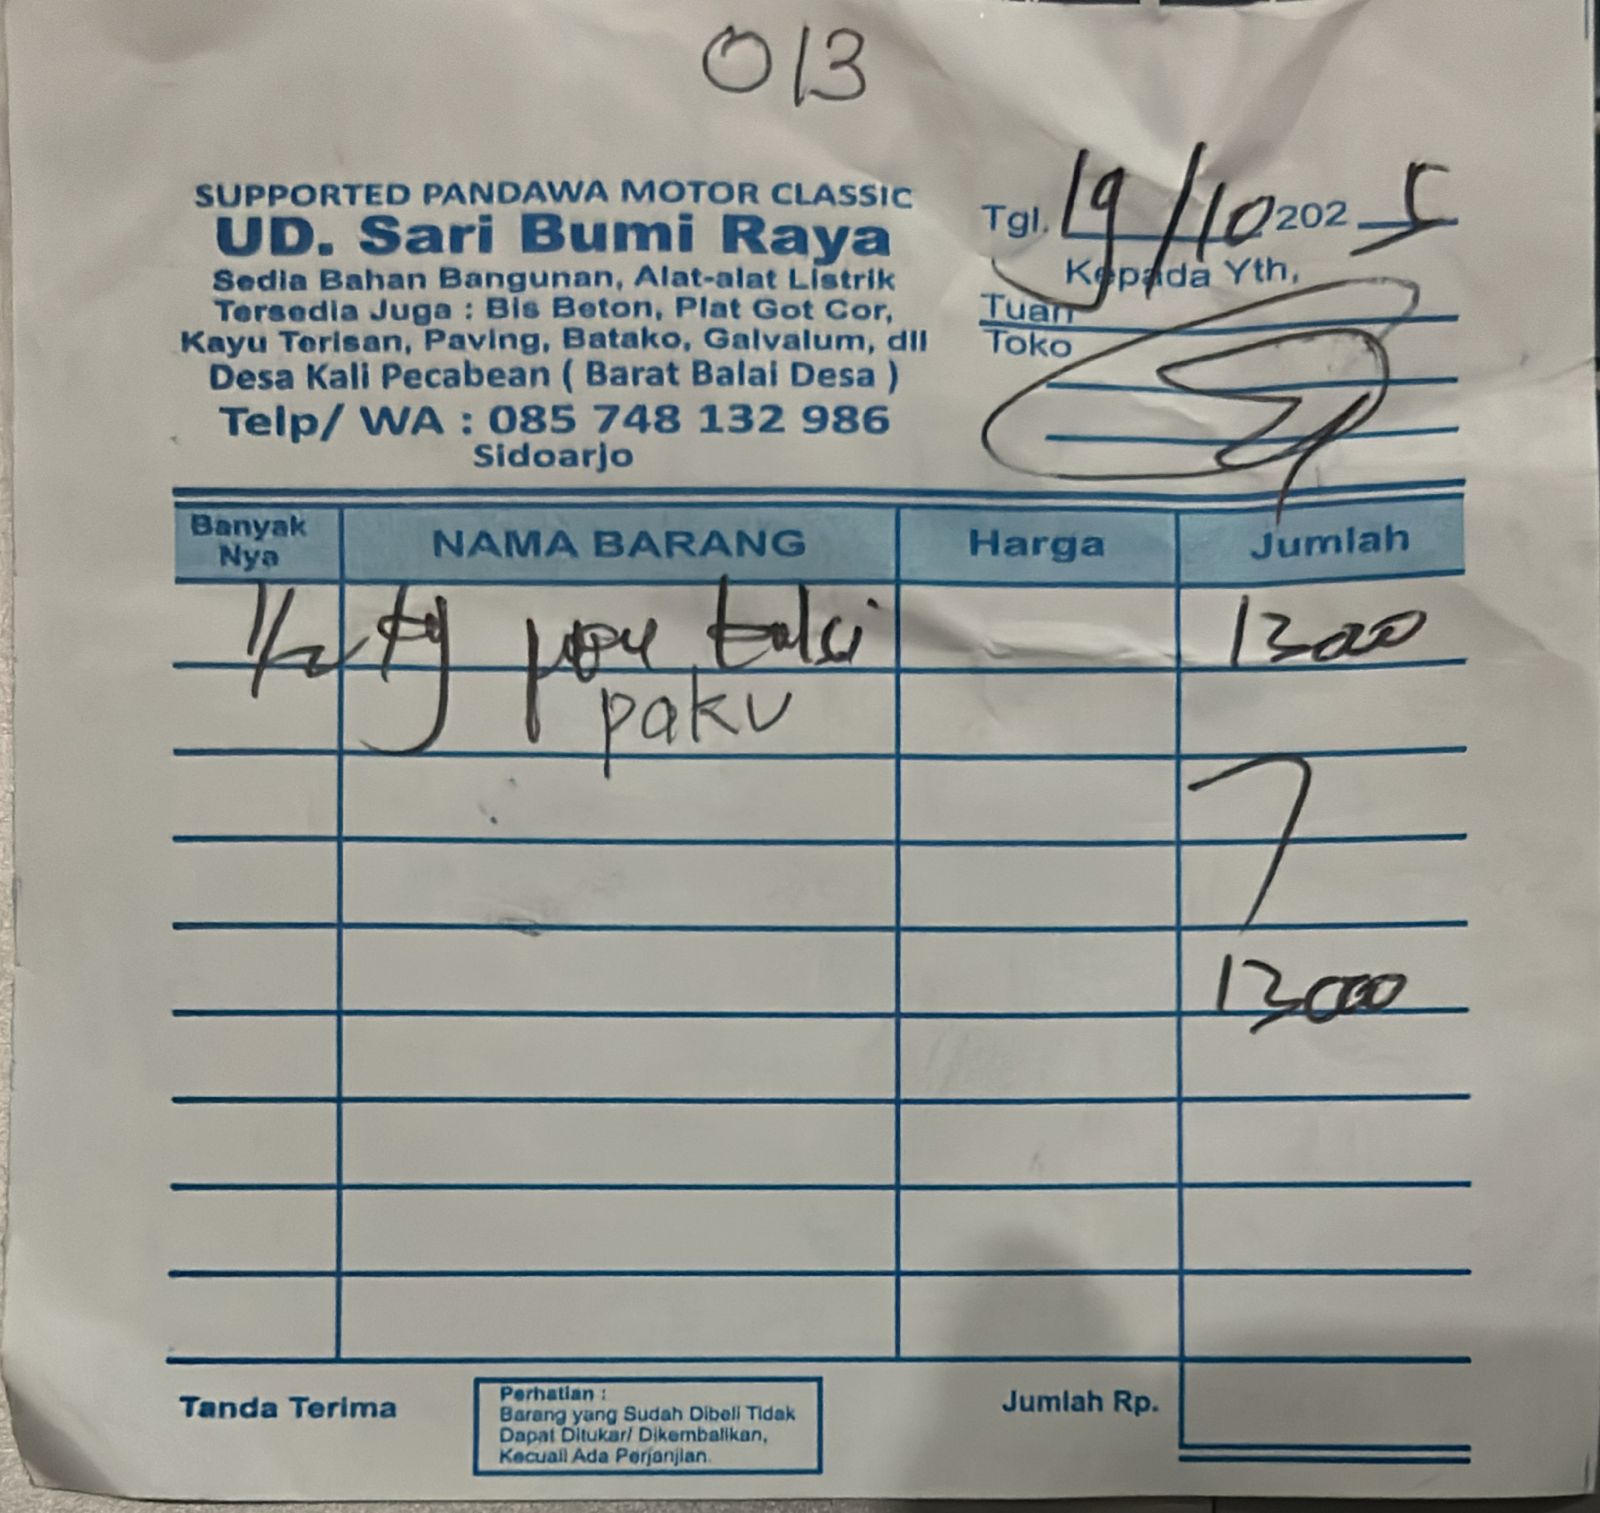 013
SUPPORTED PANDAWA MOTOR CLASSIC
UD. Sari Bumi Raya
Sedia Bahan Bangunan, Alat-alat Listrik
Tersedia Juga : Bis Beton, Plat Got Cor,
Kayu Terisan, Paving, Batako, Galvalum, dll
Desa Kali Pecabean ( Barat Balai Desa )
Telp/ WA : 085 748 132 986
Sidoarjo
Tgl. 19/10 2025
Kepada Yth,
Tuan
Toko
Banyak Nya NAMA BARANG Harga Jumlah
1/2 kg 13000
paku
13000
Tanda Terima
Perhatian :
Barang yang Sudah Dibeli Tidak
Dapat Ditukar/ Dikembalikan,
Kecuali Ada Perjanjian.
Jumlah Rp.